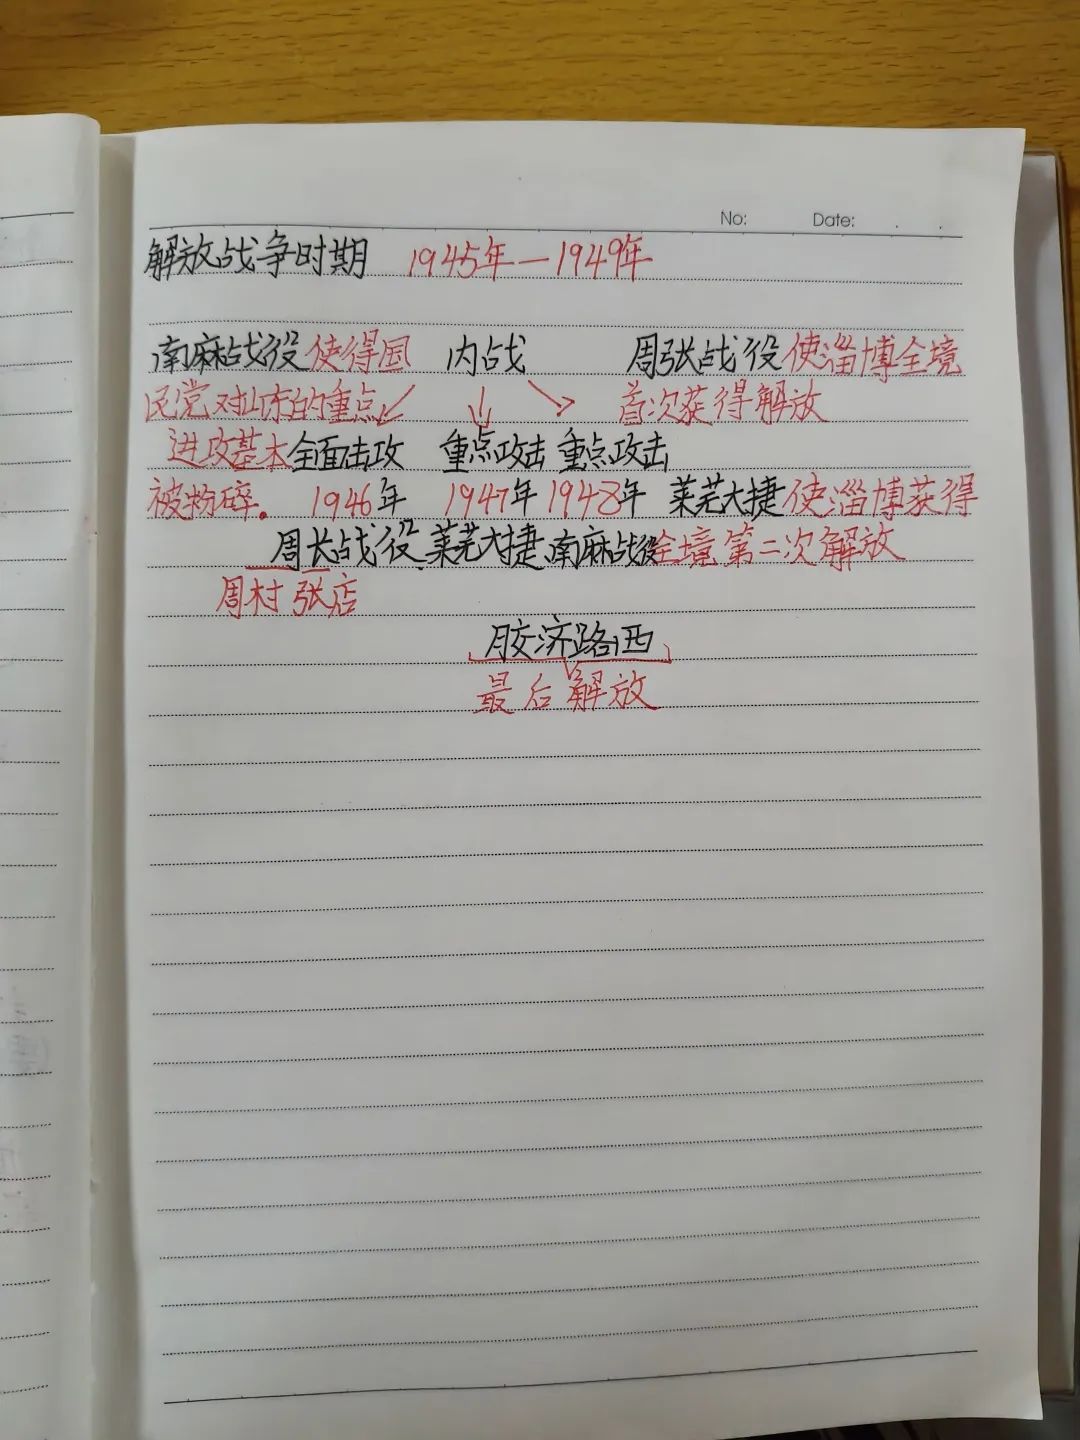 No: Date:
解放战争时期 1945年—1949年
南麻战役使得国 内战 周张战役使淄博全境
民党对山东的重点 首次获得解放
进攻基本全面击攻 重点攻击 重点攻击
被粉碎。 1946年 1947年 1948年 莱芜大捷使淄博获得
周长战役 莱芜大捷 南麻战役全境第二次解放
周村 张店
胶济路西
最后解放